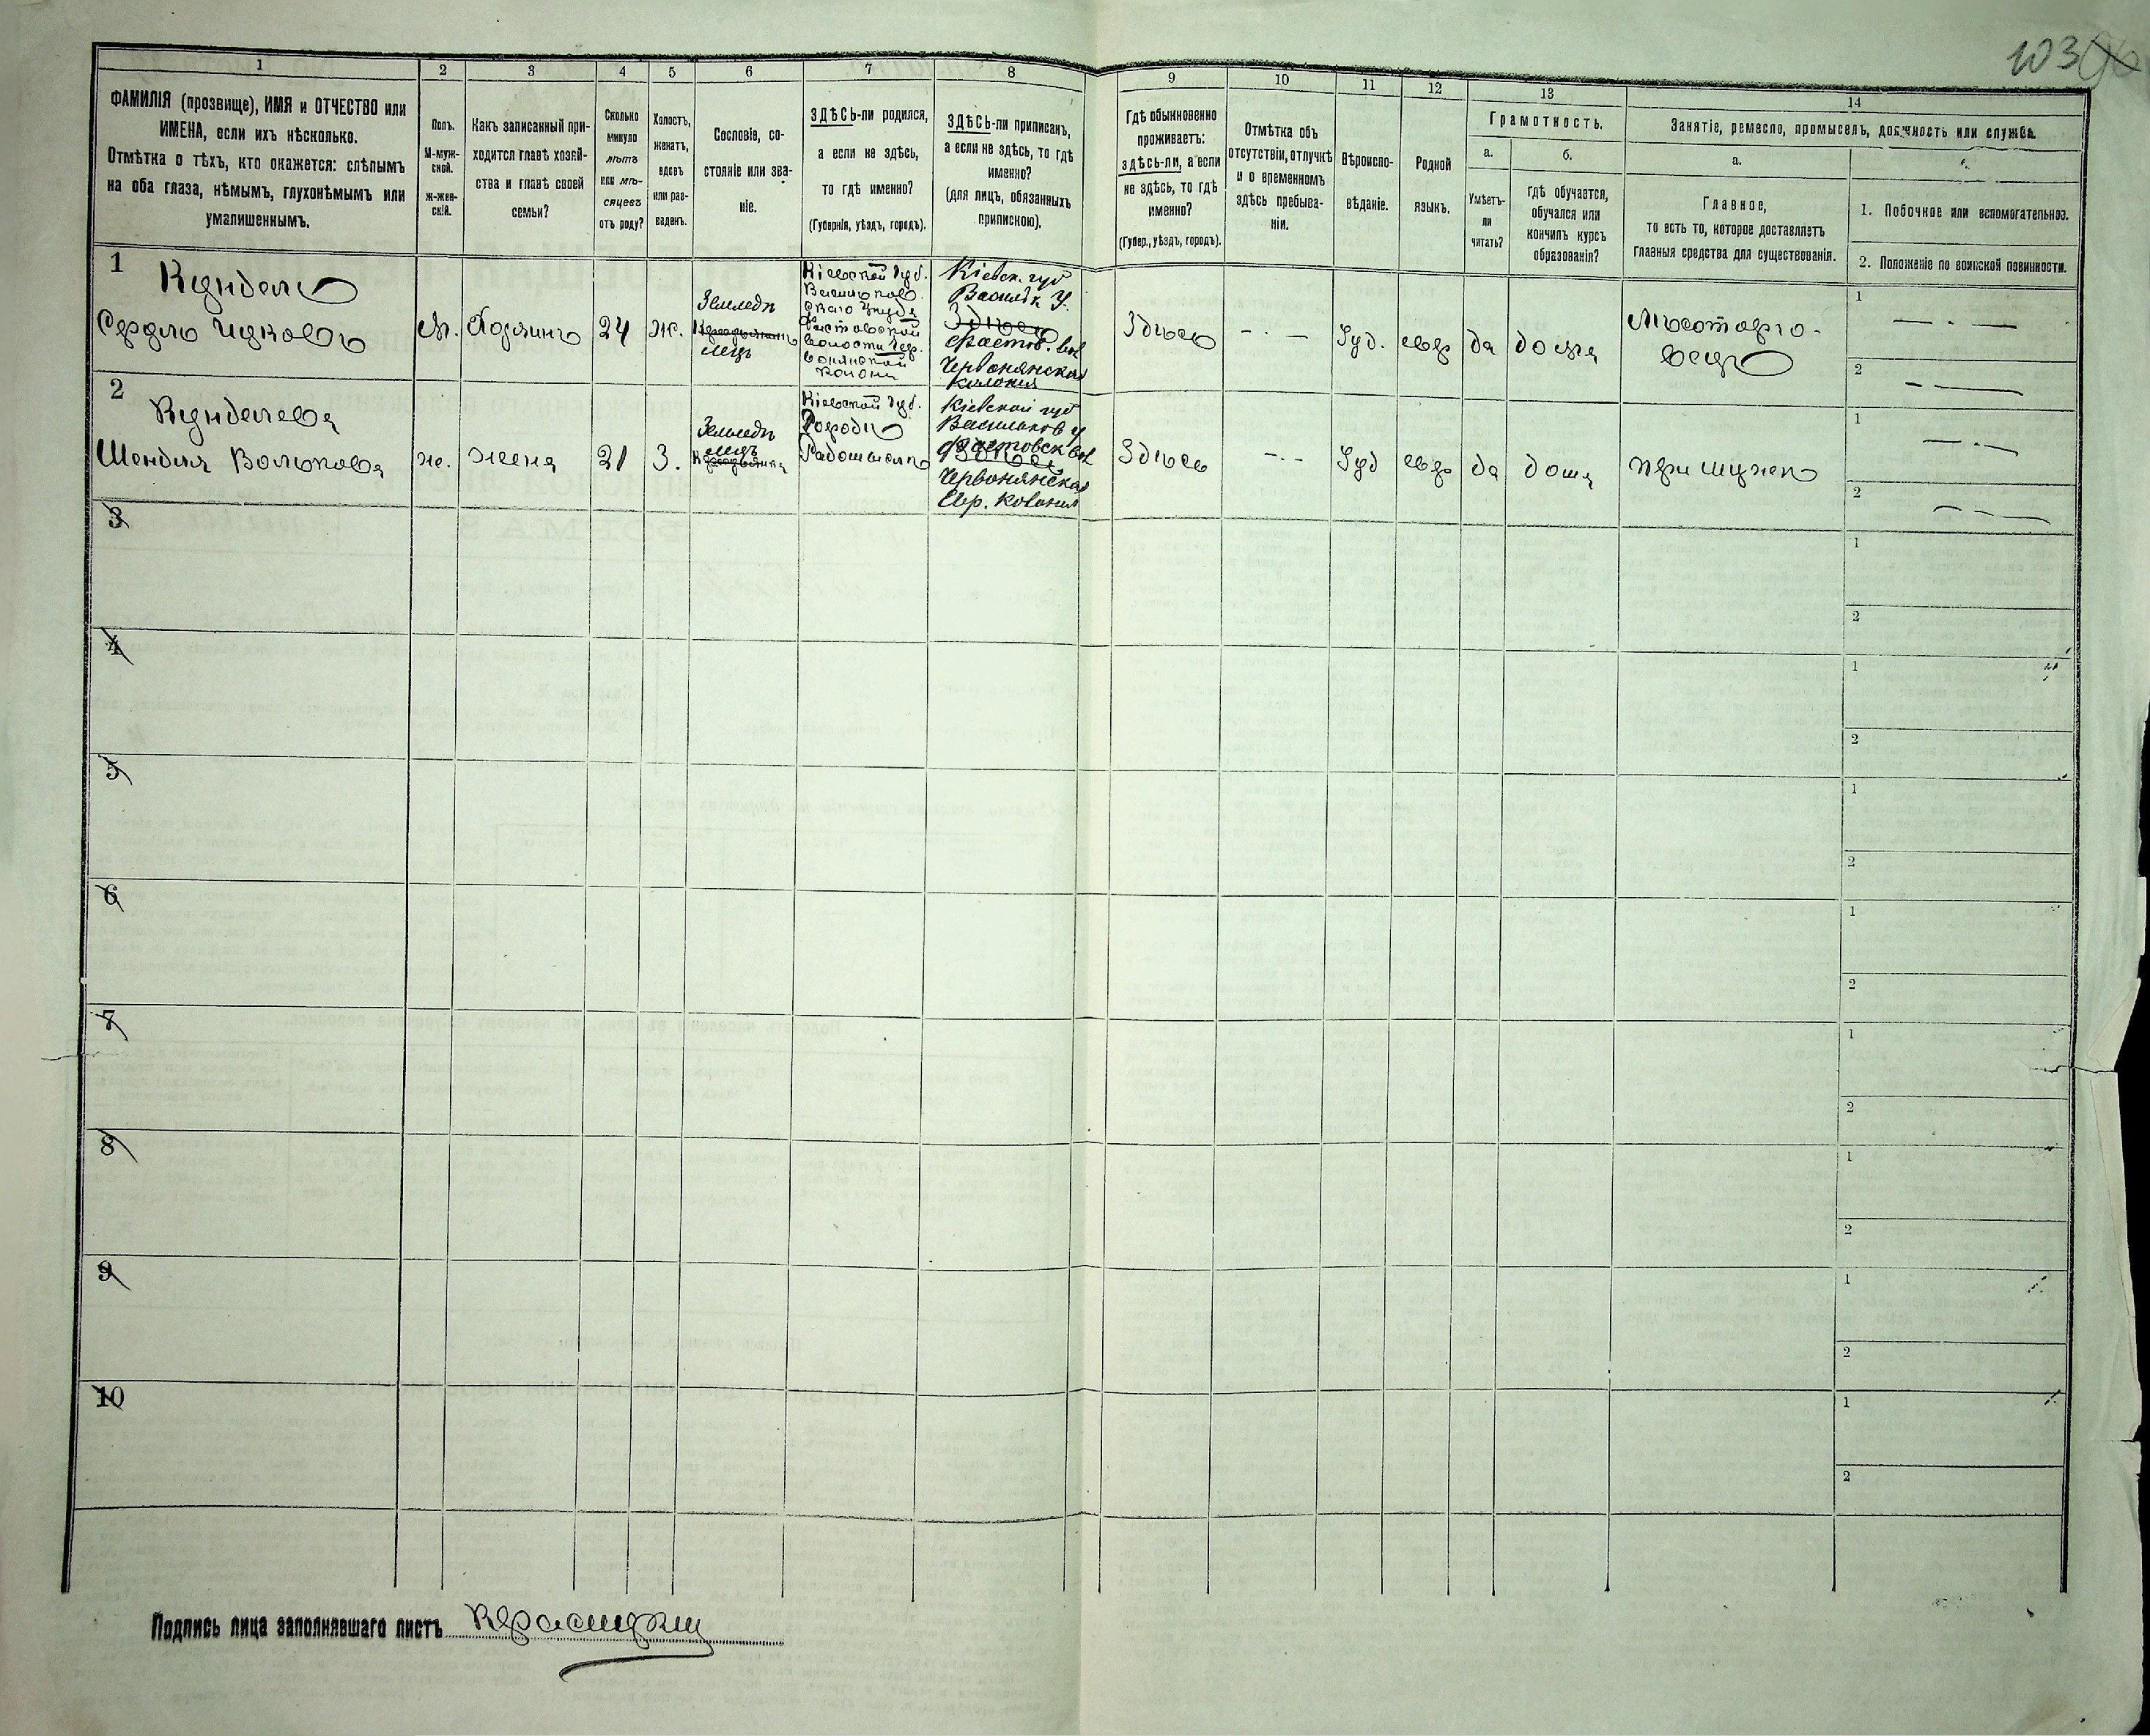 103
1
2
3
4
5
6
7
8
9
10
11
12
13
14
ФАМИЛІЯ (прозвище), ИМЯ и ОТЧЕСТВО или
ИМЕНА, если ихъ нѣсколько.
Отмѣтка о тѣхъ, кто окажется: слѣпымъ
на оба глаза, нѣмымъ, глухонѣмымъ или
умалишеннымъ.
Полъ.
М-муж-
ской.
Ж-жен-
скій.
Какъ записанный при-
ходится главѣ хозяй-
ства и главѣ своей
семьи?
Сколько
минуло
лѣтъ
или мѣ-
сяцевъ
отъ роду?
Холостъ,
женатъ,
вдовъ
или раз-
веденъ.
Сословіе, со-
стояніе или зва-
ніе.
ЗДѢСЬ-ли родился,
а если не здѣсь,
то гдѣ именно?
(Губернія, уѣздъ, городъ).
ЗДѢСЬ-ли приписанъ,
а если не здѣсь, то гдѣ
именно?
(для лицъ, обязанныхъ
припискою).
Гдѣ обыкновенно
проживаетъ:
здѣсь-ли, а если
не здѣсь, то гдѣ
именно?
(Губер., уѣздъ, городъ).
Отмѣтка объ
отсутствіи, отлучкѣ
и о временномъ
здѣсь пребыва-
ніи.
Вѣроиспо-
вѣданіе.
Родной
языкъ.
Грамотность.
а.
Умѣетъ-
ли
читать?
б.
гдѣ обучается,
обучался или
кончилъ курсъ
образованія?
Занятіе, ремесло, промыселъ, должность или служба.
а.
Главное,
то есть то, которое доставляетъ
главныя средства для существованія.
1. Побочное или вспомогательное.
2. Положеніе по воинской повинности.
1
Кундель
Срдль Ицковъ
м.
Хозяинъ
24
ж.
Земледѣ
лецъ
Кіевской губ.
Васильков
скаго уѣзда
Фастовской
волости Чер.
вонянской
колоніи
Кіевск. губ
Васильк у.
Здѣсь
Фастов. вол
Червонянская
колонія
Здѣсь
— . —
Іуд.
евр
да
дома
Мѣсоторго-
вецъ
1
— . —
2
— . —
2
Кунделева
Шендля Волькова
ж.
жена
21
З.
Земледѣ
лецъ
Кіевской губ.
Городъ
Радомысль
Кіевской губ
Васильков у
Фастовск вол
Здѣсь
Червонянская
Евр. колонія
Здѣсь
— . —
Іуд
евр
да
дома
при мужѣ
1
— . —
2
— . —
3
1
2
4
1
2
5
1
2
6
1
2
7
1
2
8
1
2
9
1
2
10
1
2
Подпись лица заполнявшаго листъ